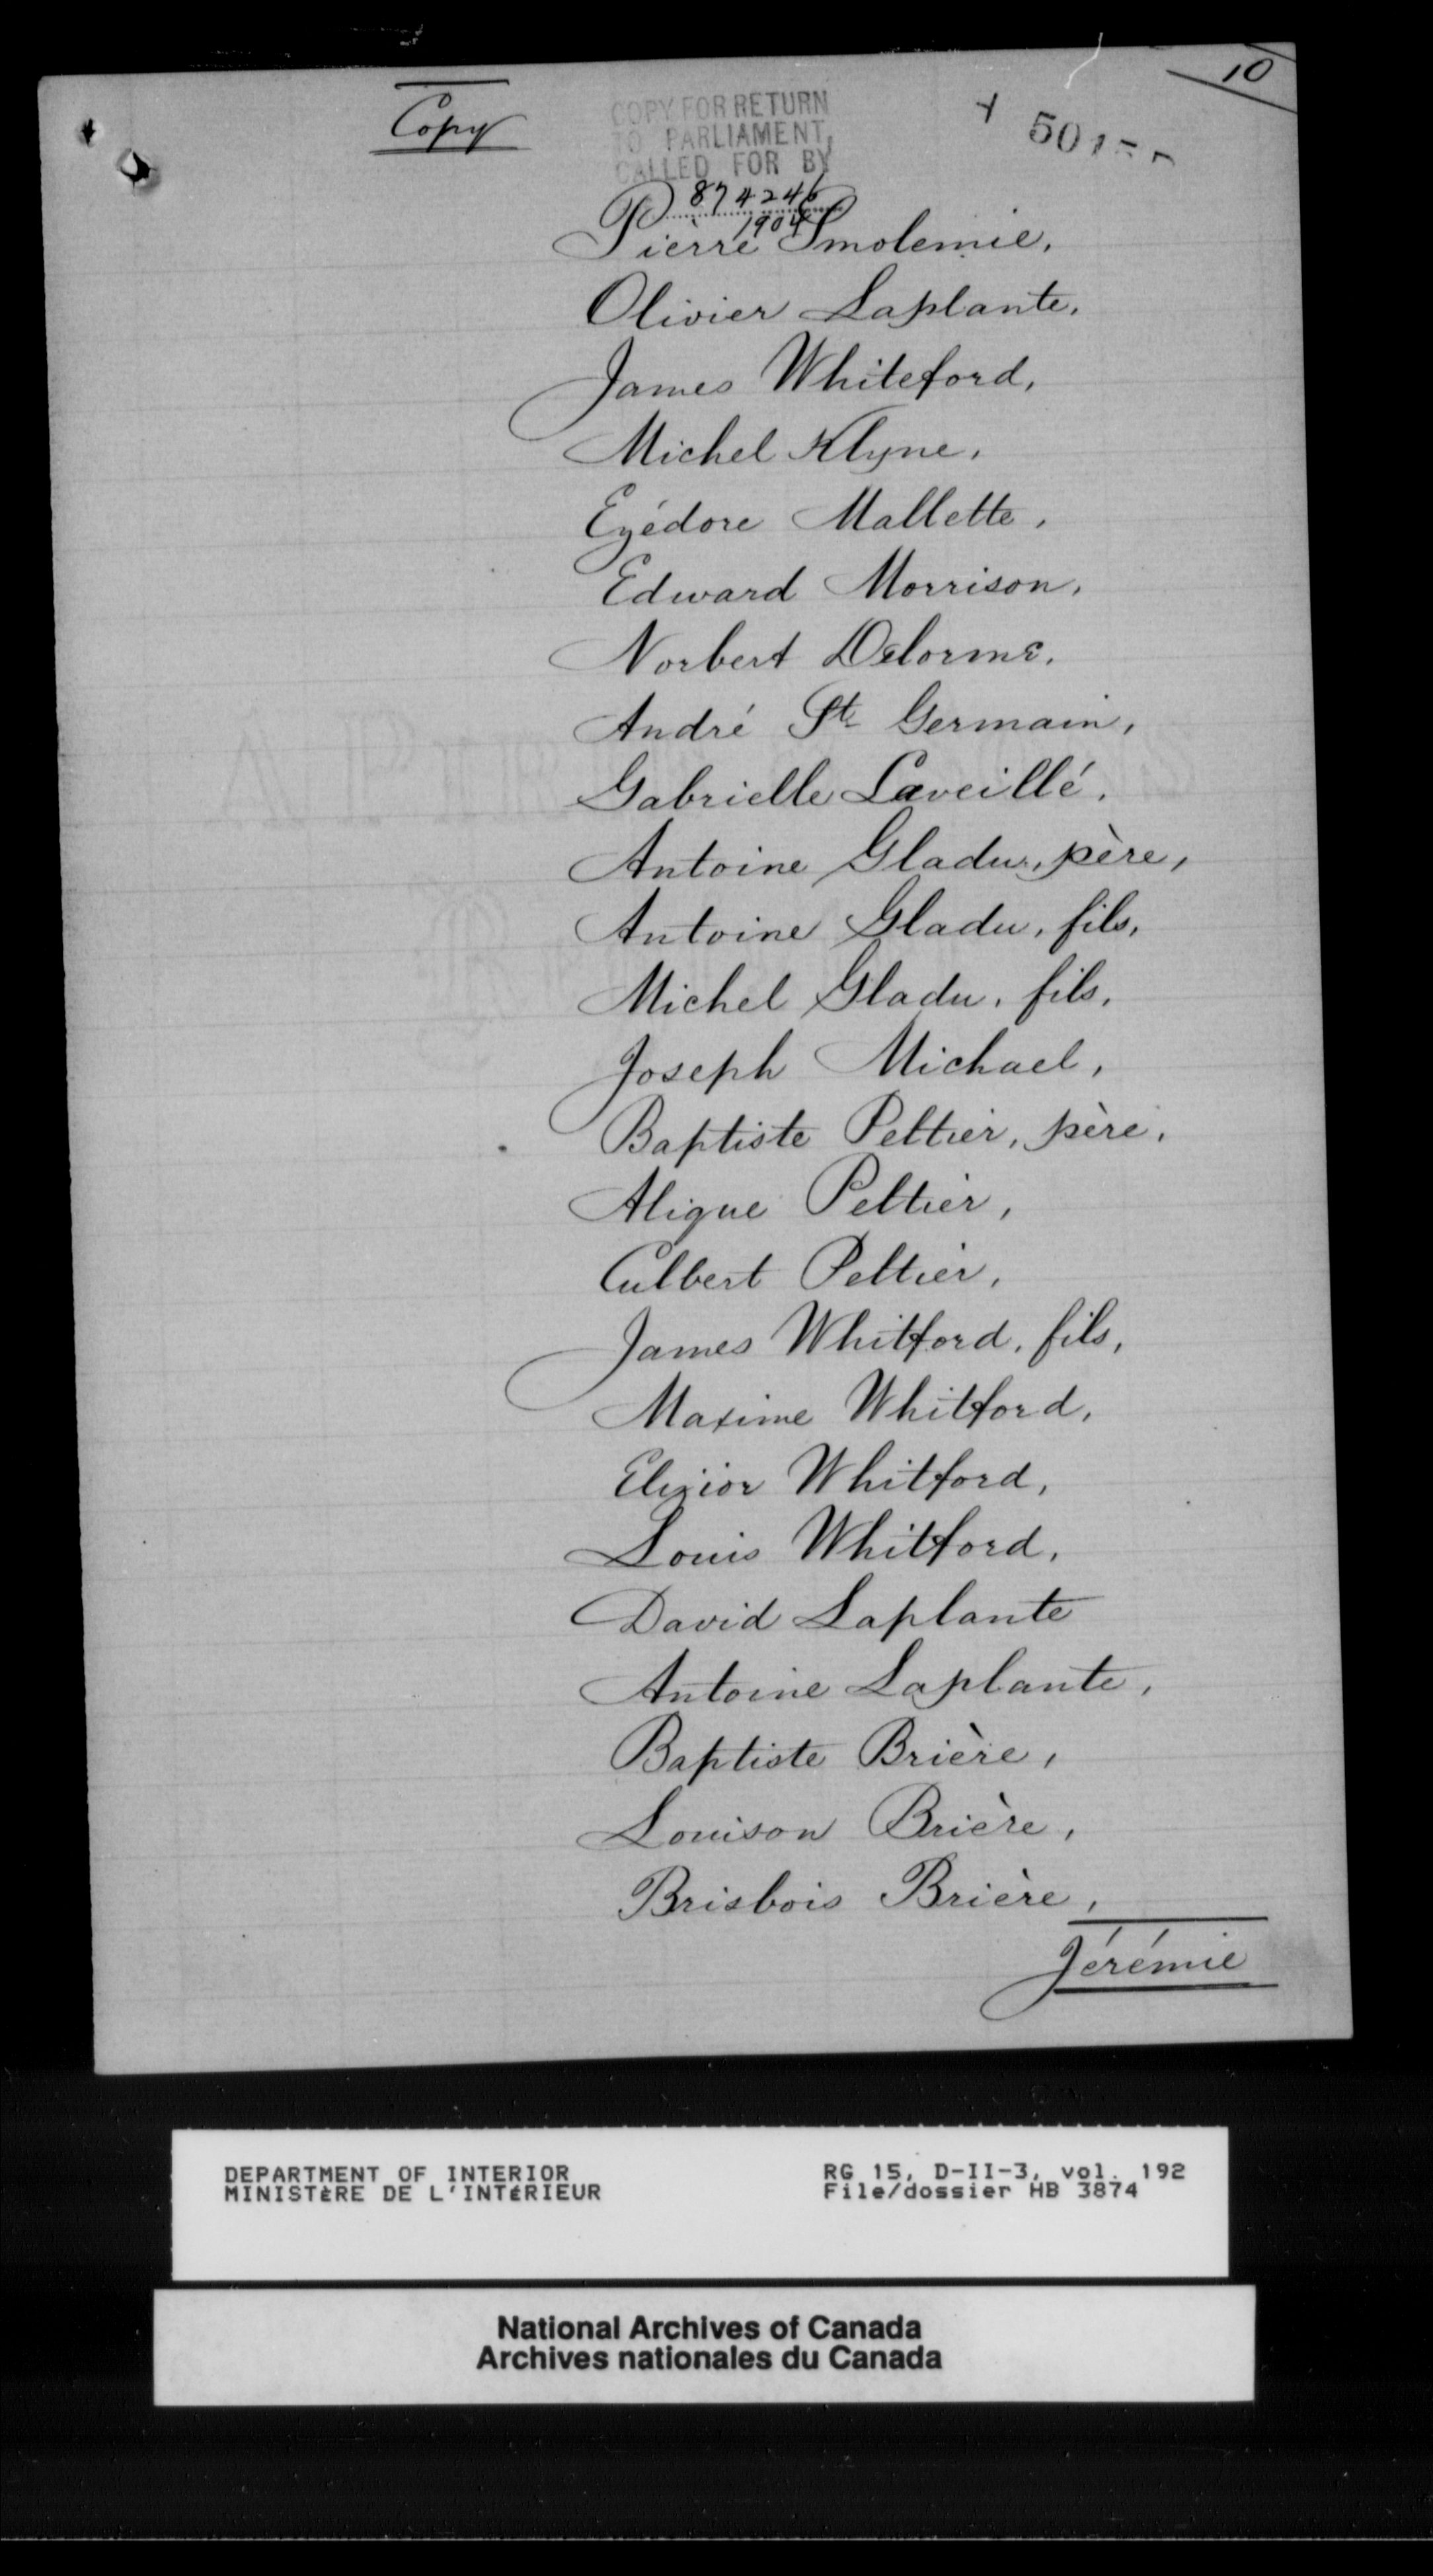 10
Copy
COPY FOR RETURN
TO PARLIAMENT,
CALLED FOR BY
874246
1904
Pièrre Smolemie,
Olivier Laplante,
James Whiteford,
Michel Klyne,
Ezédore Mallette,
Edward Morrison,
Norbert Delorme,
André St Germain,
Gabrielle Laveillé,
Antoine Gladu, père,
Antoine Gladu, fils,
Michel Gladu, fils,
Joseph Michael,
Baptiste Peltier, père,
Aligue Peltier,
Culbert Peltier,
James Whitford, fils,
Maxime Whitford,
Elizior Whitford,
Louis Whitford,
David Laplante
Antoine Laplante,
Baptiste Brière,
Louison Brière,
Brisbois Brière,
Jérémie
DEPARTMENT OF INTERIOR
MINISTÈRE DE L'INTÉRIEUR
RG 15, D-II-3, vol. 192
File/dossier HB 3874
National Archives of Canada
Archives nationales du Canada